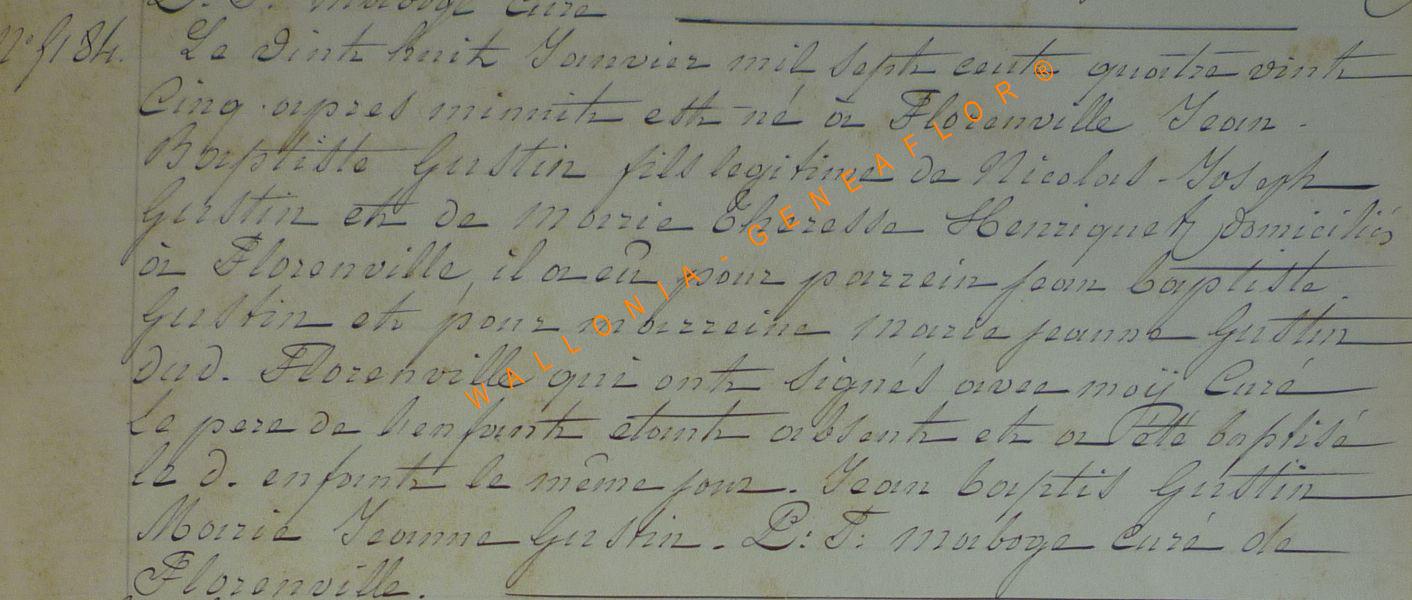 P. T. maboge curé
N° 5184. Le vint huit Janvier mil sept cent quatre vint
Cinq apres minuit est né à Florenville Jean
Baptiste Gustin fils legitime de Nicolas Joseph
Gustin et de Marie Theresse Henriquet domiciliés
à Florenville, il a eû pour parrein jean baptiste
Gustin et pour marreine marie jeanne Gustin
dud. Florenville qui ont signés avec moÿ Curé
Le pere de l'enfant etant absent et a Etté baptisé
le d. enfant le même jour. Jean baptis Gustin
Marie Jeanne Gustin. P: T: maboge Curé de
Florenville.
WALLONIA. GENEAFLOR®